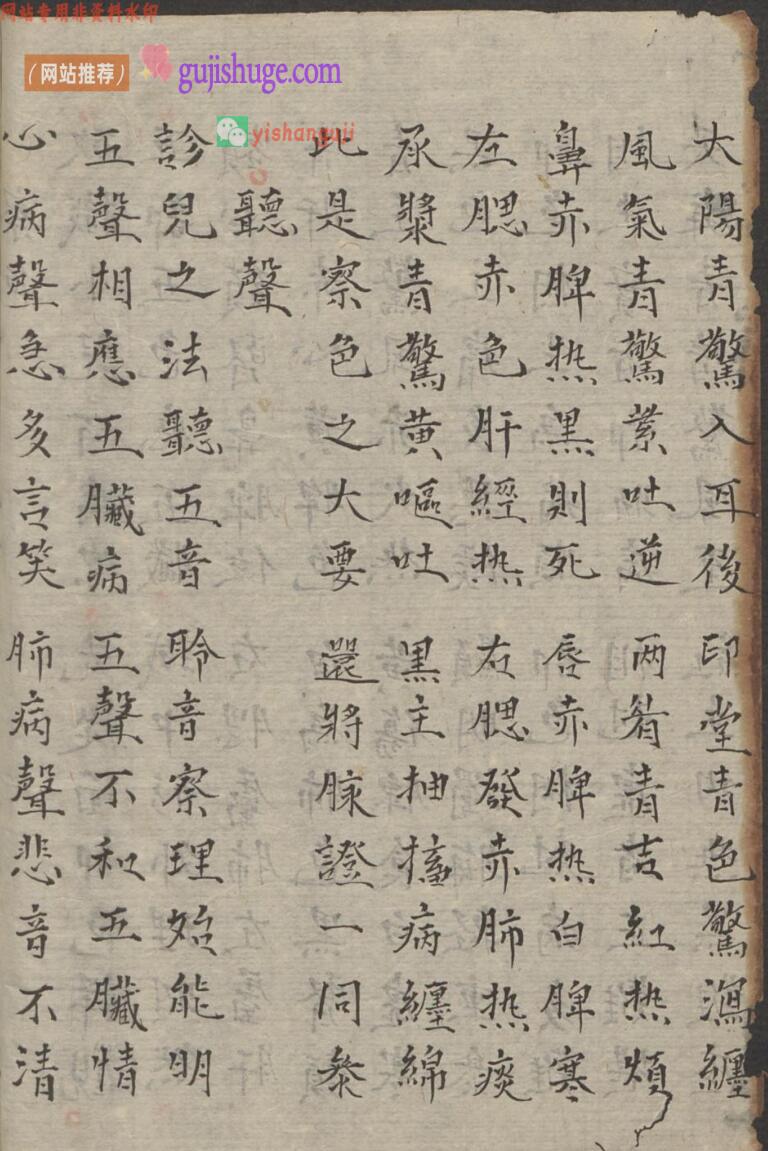 网站专用非资料水印
(网站推荐) gujishuge.com
yishanguji
大陽青驚入耳後 印堂青色驚瀉纏
風氣青驚紫吐逆 两眉青吉紅热煩
鼻赤脾热黑則死 唇赤脾热白脾寒
左腮赤色肝經热 右腮發赤肺热痰
承漿青驚黄嘔吐 黑主抽搐病纏綿
此是察色之大要 還將脉證一同叅
聽聲
診兒之法聽五音 聆音察理始能明
五聲相應五臟病 五聲不和五臟情
心病聲急多言笑 肺病聲悲音不清